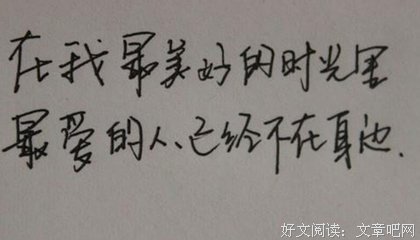 在我最美好的时光里
最爱的人、已经不在身边.
好文阅读：文章吧网